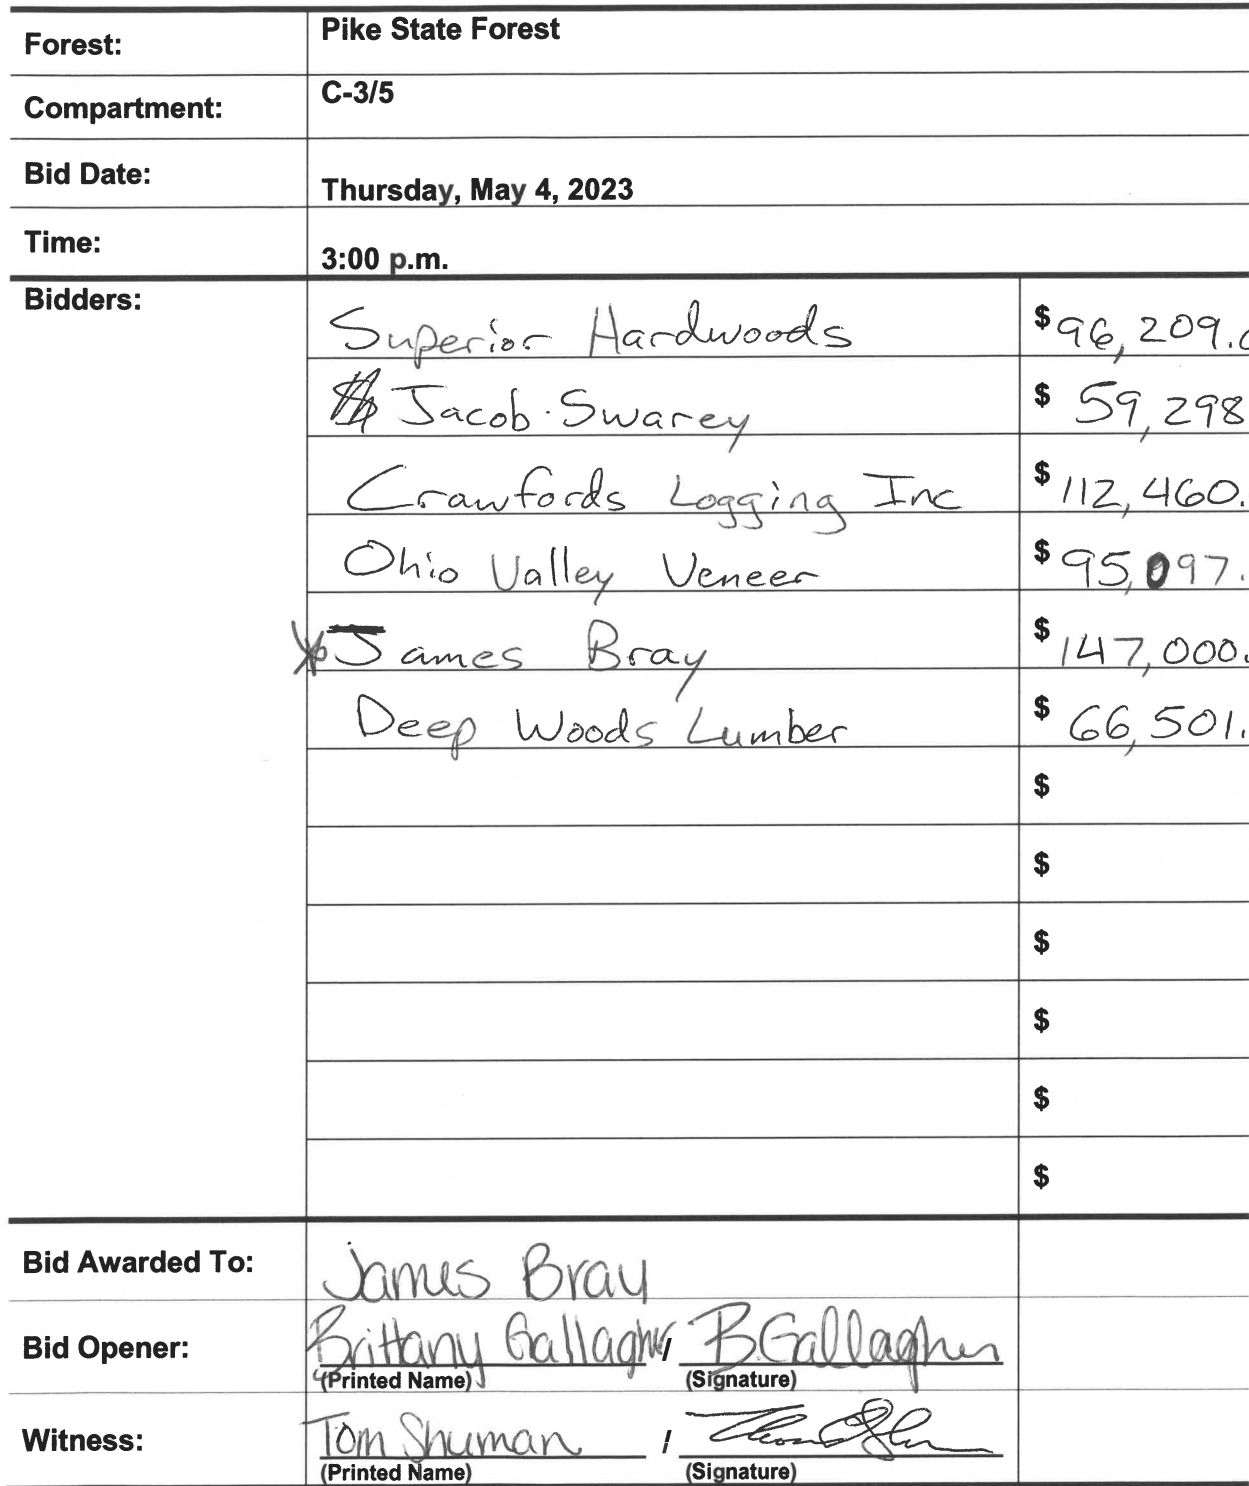 Forest: Pike State Forest
Compartment: C-3/5
Bid Date: Thursday, May 4, 2023
Time: 3:00 p.m.
Bidders: Superior Hardwoods $96,209.
Jacob Swarey $ 59,298
Crawfords Logging Inc $112,460.
Ohio Valley Veneer $95,097.
James Bray $147,000.
Deep Woods Lumber $ 66,501.
$
$
$
$
$
$
Bid Awarded To: James Bray
Bid Opener: Brittany Gallagher / B.Gallagher
(Printed Name) (Signature)
Witness: Tom Shuman /
(Printed Name) (Signature)